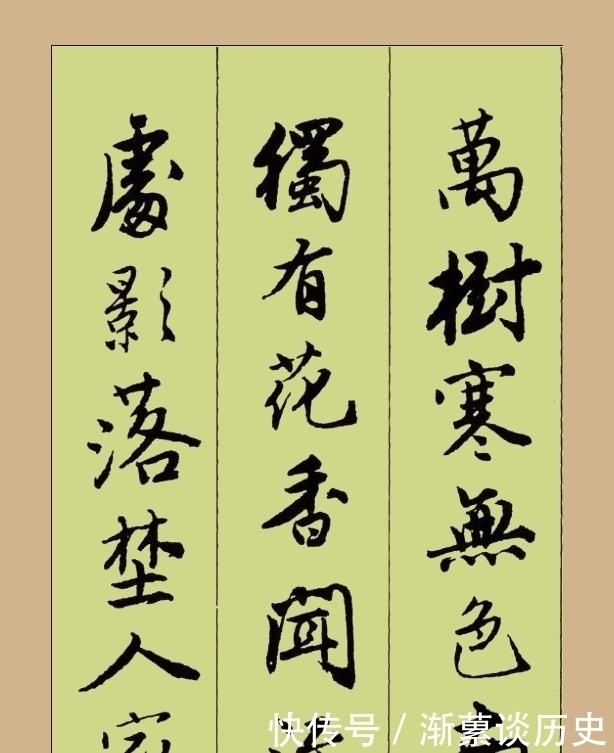 萬樹寒無色
獨有花香聞
處影落埜人家
快传号 / 渐谈历史